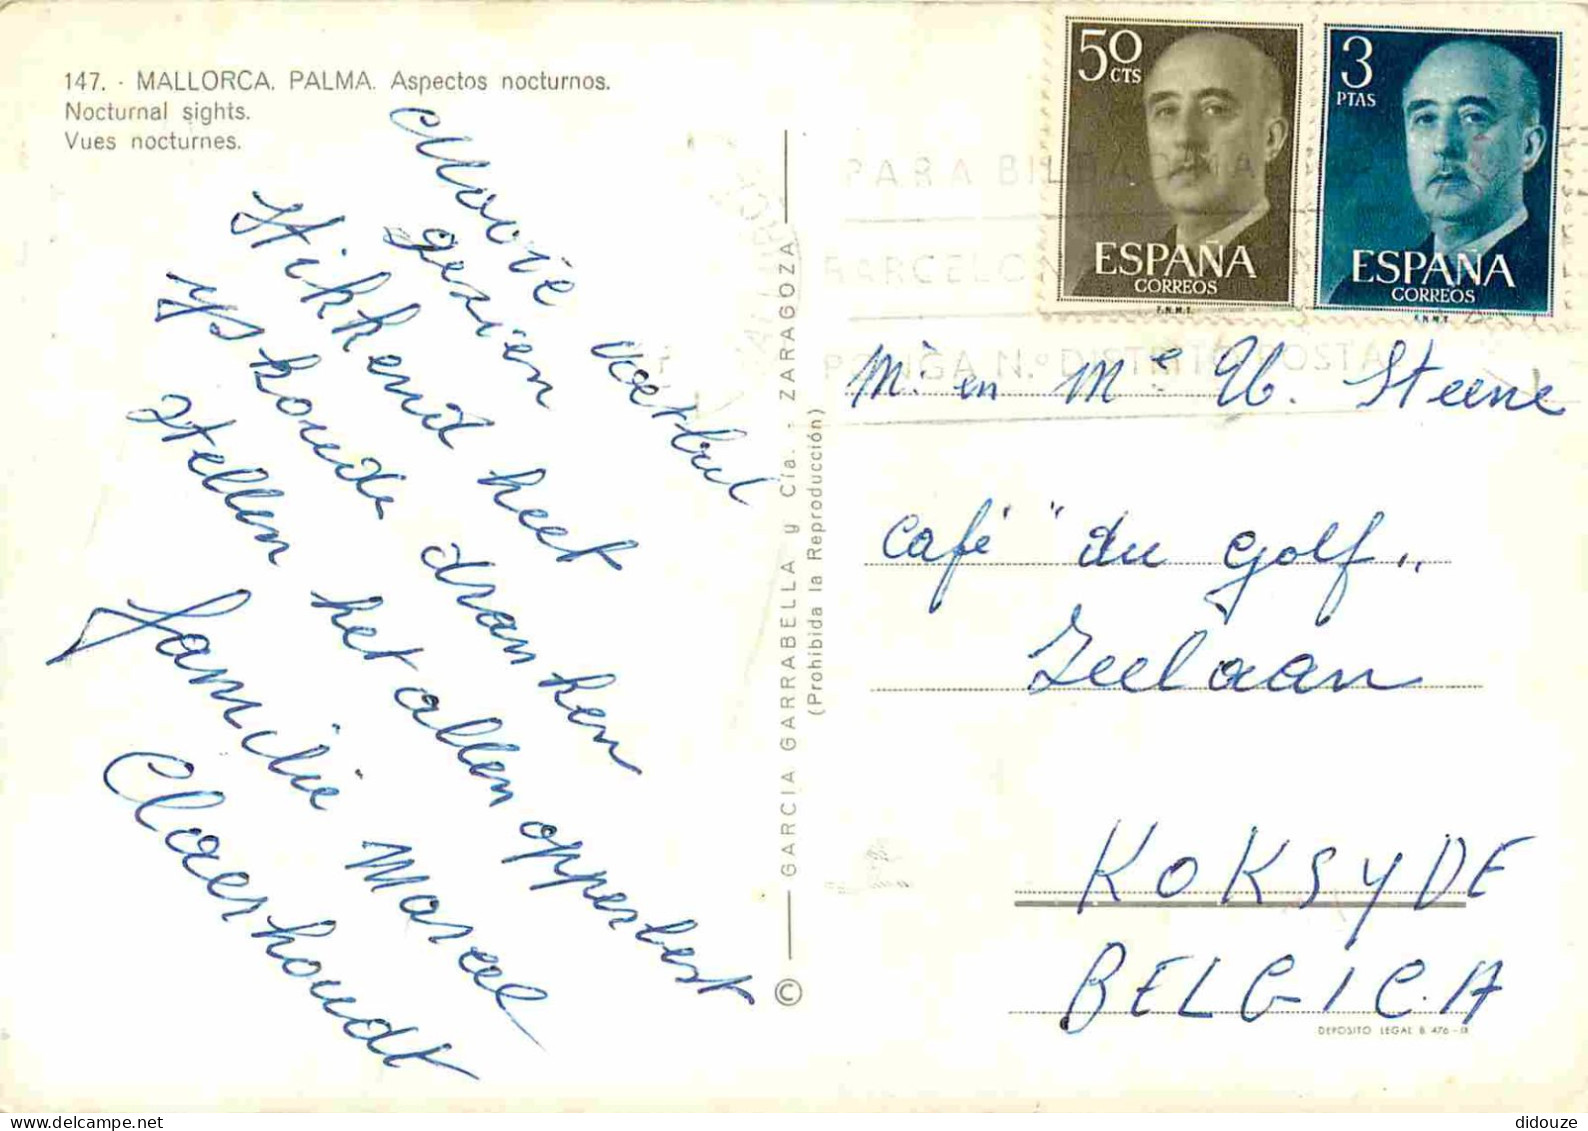 147. - MALLORCA. PALMA. Aspectos nocturnos.
Nocturnal sights.
Vues nocturnes.
Mooie voetbal
gezien
Stikkend heet
Yskoude dranken
Stellen het allen opperbest
Familie Marcel
Claerhoudt
GARCIA GARRABELLA y Cía. - ZARAGOZA
(Prohibida la Reproducción)
©
50 CTS
ESPAÑA
CORREOS
F.N.M.T.
3 PTAS
ESPAÑA
CORREOS
F.N.M.T.
PARA BILBAO MA
BARCELON
PONGA N.º DISTRITO POSTA
Mr. en Me Steene
Café "du Golf"
Zeelaan
KOKSYDE
BELGICA
DEPOSITO LEGAL B. 476 - IX
didouze